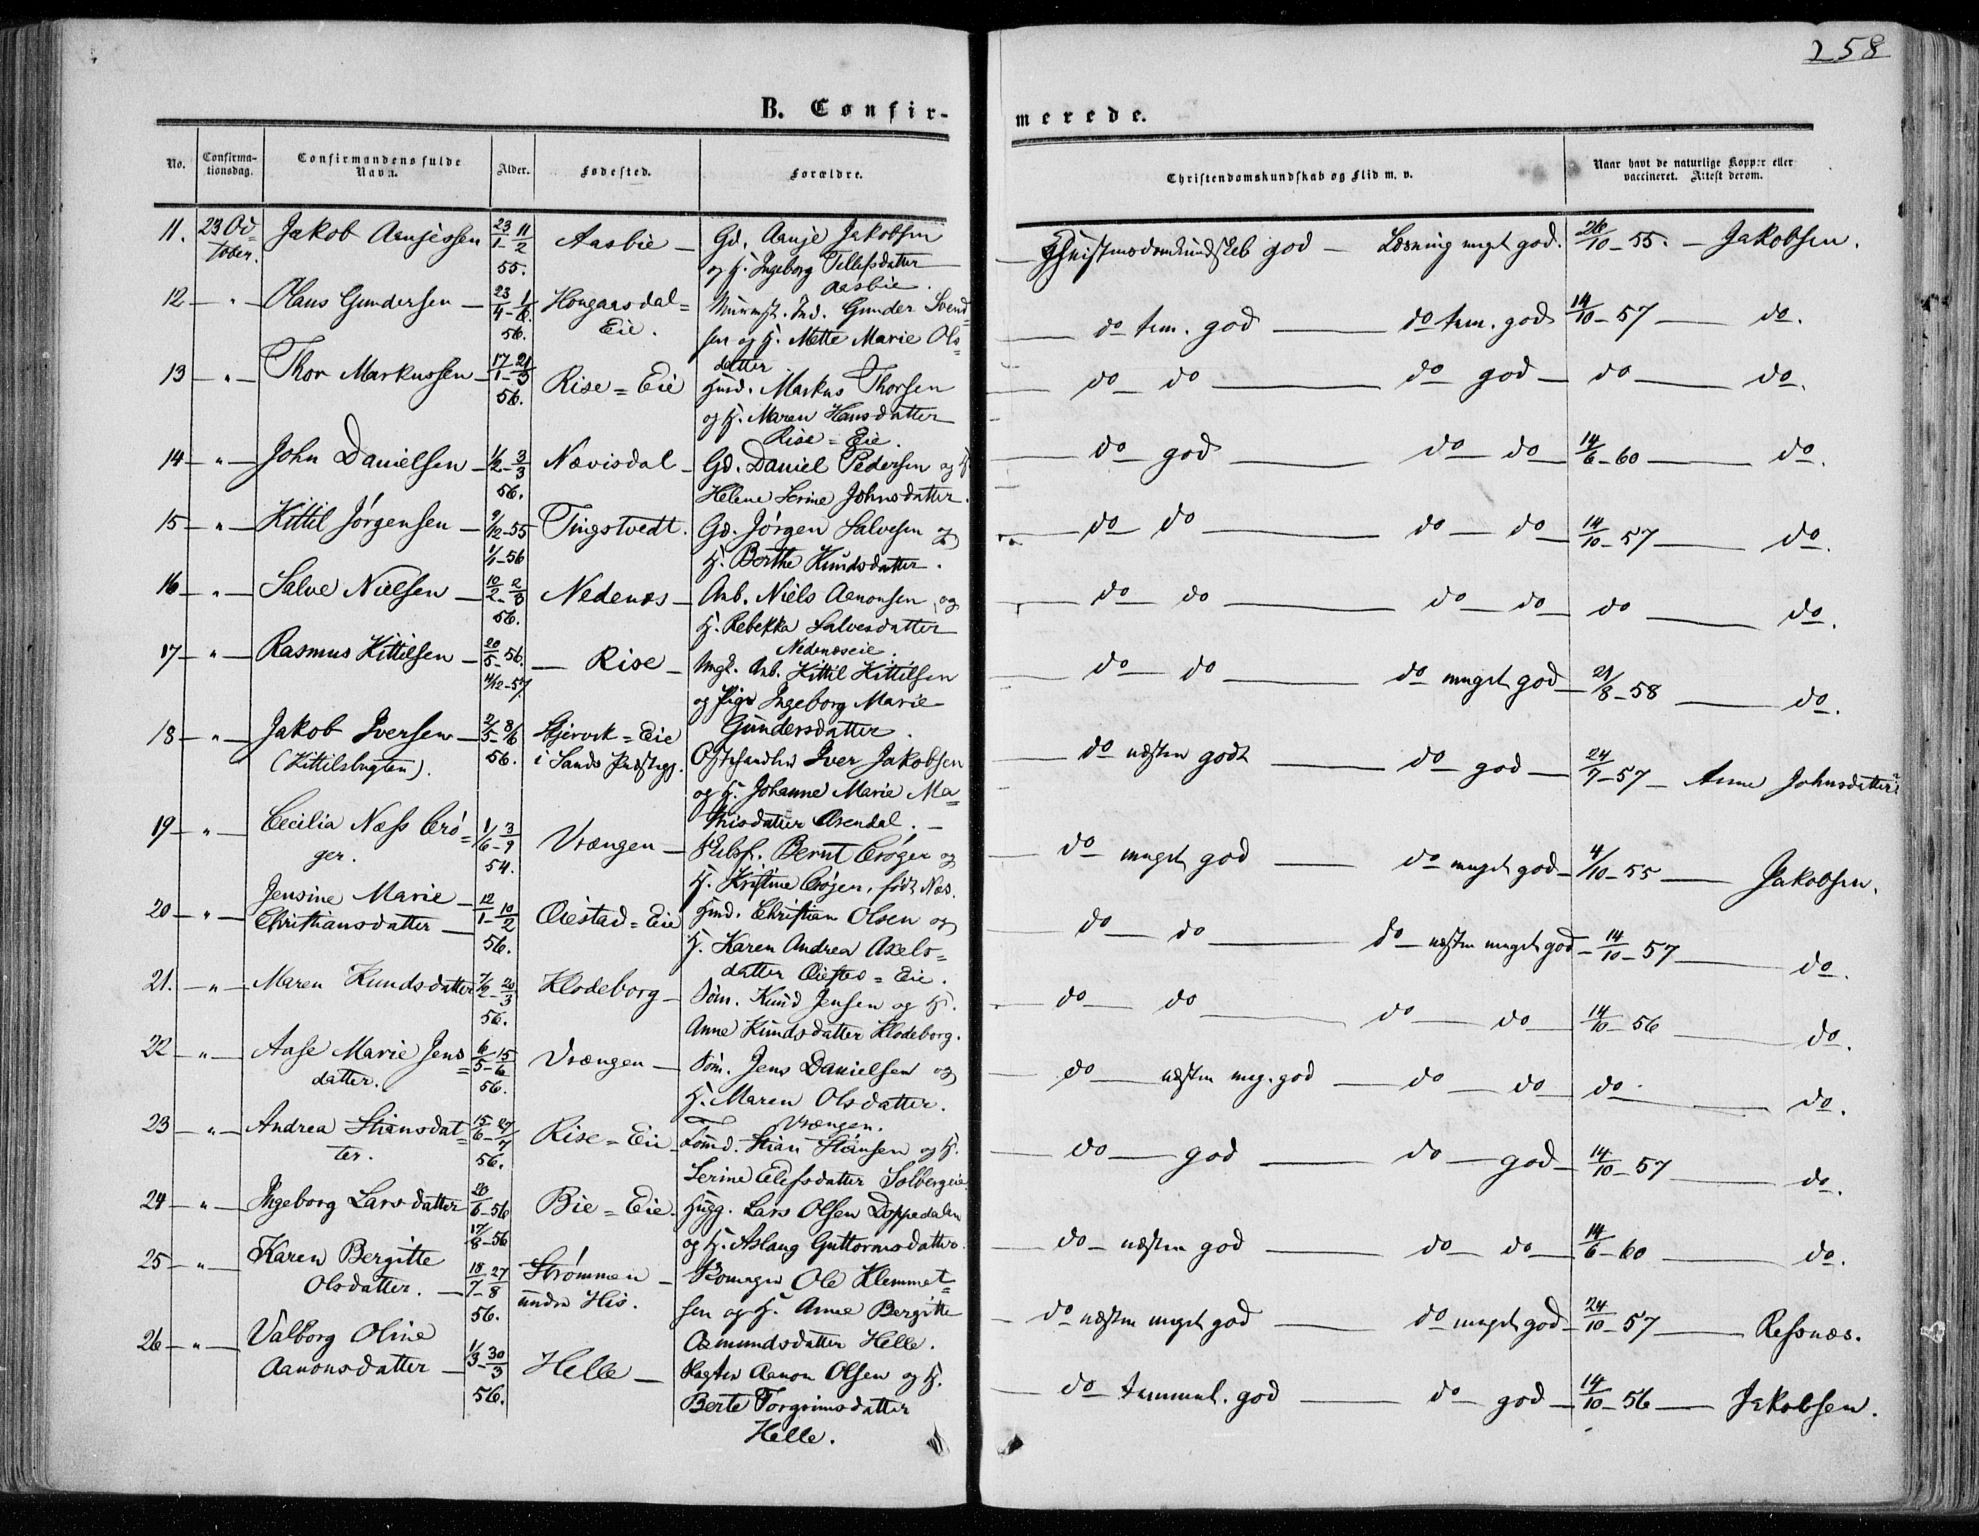 258
B. Confir-
merede.
No.
Confirma-
tionsdag.
Confirmandens fulde
Navn.
Alder.
Fødested.
Forældre.
Christendomskundskab og Flid m. v.
Naar havt de naturlige Kopper eller
vaccineret. Attest derom.
11. 23 Oc= Jakob Aanjessen 23/1 11/2 Aasbie — Gd. Aanje Jakobsen
tober. 55. og H. Ingeborg Tellefsdatter
Aasbie.
Christendomskundskab god — Læsning meget god. 26/10 - 55. — Jakobsen.
12 — " — Olaus Gundersen — 23/4 - 1/6 Hougaasdal= Gunder Svend=
56. Eie. sen og H. Mette Marie Ols=
datter
do tem. god — do tem. god 14/10 - 57 — do.
13 — " — Thor Markussen — 17/1 - 21/3 Rise = Eie Husmd. Markus Thorsen
56. og H. Maren Hansdatter
Rise = Eie.
do do — do god — do — do.
14 — " — John Danielsen — 1/2 - 3/3 Nævisdal — Gd. Daniel Pedersen og H.
56. Helene Serine Johnsdatter.
do god — do — do 14/6 - 60 — do.
15 — " — Kittil Jörgensen — 9/12 - 55 Tingstvedt. Gd. Jörgen Salvesen og
1/1 - 56 H. Berthe Knudsdatter.
do do — do — do 14/10 - 57 — do.
16 — " — Salve Nielsen — 10/2 - 2/3 Nedenæs — Arb. Niels Aanonsen, og
56. H. Rebekka Salvesdatter
Nedenæseie.
do do — do — do do — do.
17 — " — Rasmus Kittilsen — 20/5 - 56. — Rise — Ungk. Arb. Kittil Kittilsen
4/12 - 57 og Pige Ingeborg Marie
Gundersdatter.
do — do — do meget god — 21/8 - 58 — do.
18 — " — Jakob Iversen — 2/5 - 8/6 = Eie Iver Jakobsen
(Kittilsbugten). 56. i Sands Præstegj. og H. Johanne Marie Ma=
thisdatter Arendal. —
do næsten godt — do — god — 24/7 - 57 — Anne Johnsdatter
19 — " — Cecilia Næss Crö= 1/6 - 3/9 Vrængen — Bernt Cröger og
ger. 54. H. Kristine Cröger, födt Næs.
do meget god — do meget god — 4/10 - 55 — Jakobsen.
20 — " — Jensine Marie — 12/1 - 10/2 Öiestad = Eie Husmd. Christian Olsen og
Christiansdatter — 56. H. Karen Andrea Axels=
datter Öiestad = Eie.
do — do — do — næsten meget god — 14/10 - 57 — do.
21. — " — Maren Knudsdatter 7/2 - 20/3 Klodeborg — Söm. Knud Jensen og H.
56. Anne Knudsdatter Klodeborg.
do — do — do — do 14/10 - 56 — do.
22 — " — Aase Marie Jens= 6/5 - 15/6 Vrængen — Söm. Jens Danielsen og
datter. 56. H. Maren Olsdatter.
Vrængen.
do — næsten meg. god — do — do — do — do.
23 — " — Andrea Stiansdat= 15/6 - 27/7 Rise = Eie — Stian Stiansen og H.
ter. 56. Serine Elefsdatter Solbergeie.
do — god — do — god — 14/10 - 57 — do.
24 — " — Ingeborg Larsdatter 26/6 - 56 Bie = Eie. Lars Olsen Doppedalen
17/8 - 56 og H. Aslaug Guttormsdatter.
do — næsten god — do — do — 14/6 - 60 — do.
25 — " — Karen Bergitte 18/7 - 27/8 Strömmen — Ole Klemmet=
Olsdatter. — 56. under His. sen og H. Anne Bergitte
Osmundsdatter Helle.
do næsten meget god — do meget god — 24/10 - 57 — Refsnæs.
26 — " — Valborg Oline 1/3 - 30/3 Helle — Aanon Olsen og H.
Aanonsdatter — 56. Berte Torgrimsdatter
Helle.
do temmel. god — do god — 14/10 - 56 — Jakobsen.